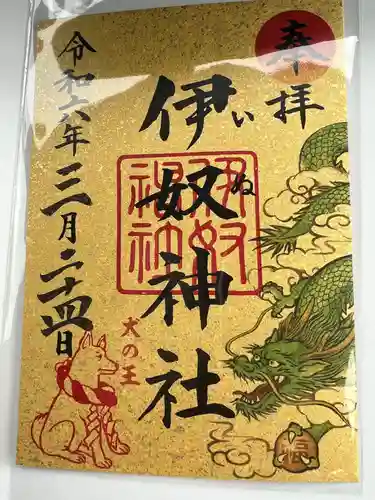 奉拝
伊奴神社
いぬ
伊奴
神社
犬の王
令和六年
三月二十四日
福